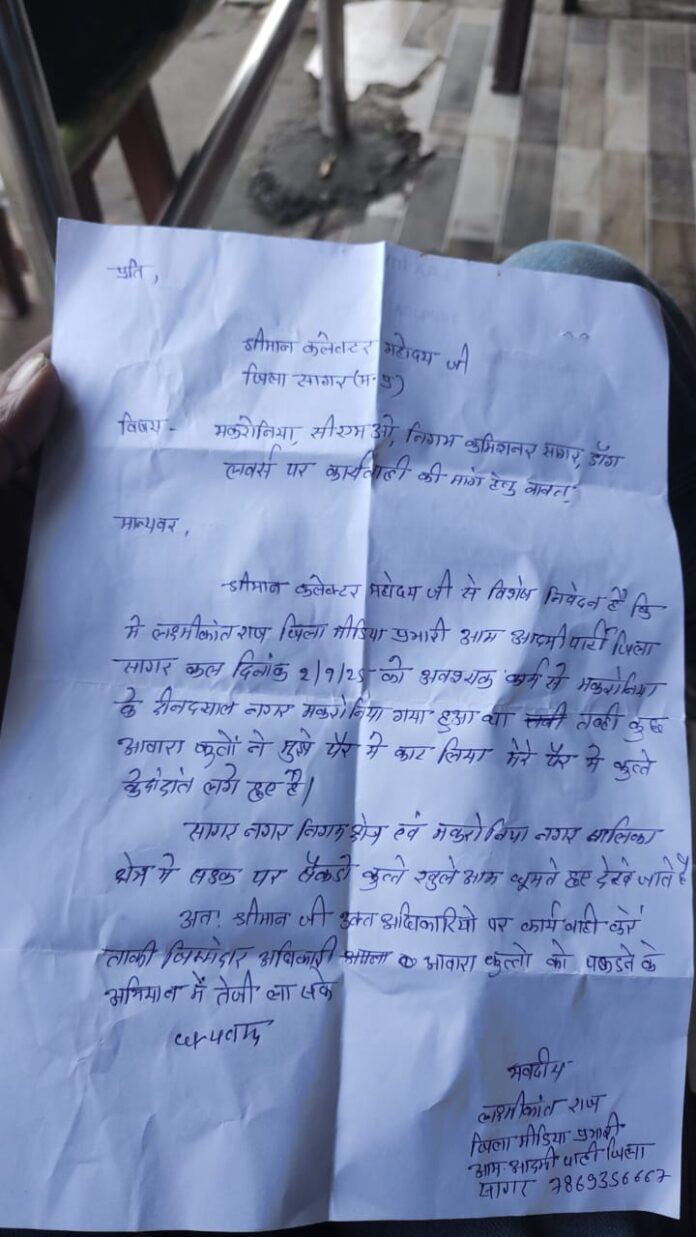 प्रति,
श्रीमान कलेक्टर महोदय जी
जिला सागर (म.प्र)
विषय - मकरोनिया, सीएमओ, निगम कमिशनर सागर, डॉग
लवर्स पर कार्यवाही की मांग हेतु बावत्
मान्यवर,
श्रीमान कलेक्टर महोदय जी से विशेष निवेदन है कि
मे लक्ष्मीकांत राज जिला मीडिया प्रभारी आम आदमी पार्टी जिला
सागर कल दिनांक 2/9/25 को अवश्यक कार्य से मकरोनिया
के दीनदयाल नगर मकरोनिया गया हुआ था तब्ही कुछ
आवारा कुत्तों ने मुझे पैर मे काट लिया मेरे पैर मे कुत्ते
के दो दांत लगे हुए है।
सागर नगर निगम क्षेत्र एवं मकरोनिया नगर पालिका
क्षेत्र मे सडक पर सैकडो कुत्ते खुले आम घूमते हुए देखे जाते है
अतः श्रीमान जी उक्त अधिकारियो पर कार्यवाही करें
ताकी जिम्मेदार अधिकारी आवारा कुत्तो को पकडने के
अभियान में तेजी ला सके
धन्यवाद
भवदीय
लक्ष्मीकांत राज
जिला मीडिया प्रभारी
आम आदमी पार्टी जिला
सागर 7869356667